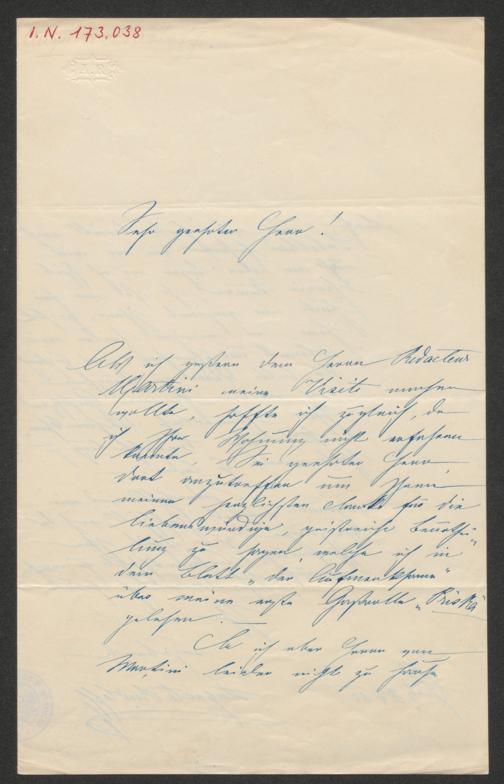 I.N. 173.038
Sehr geehrter Herr!
Als ich gestern dem Herrn Redacteur
Martini meine Visite machen
wollte, hoffte ich zugleich, da
ich Ihre Wohnung nicht erfahren
konnte, Sie geehrter Herr,
dort anzutreffen um Ihnen
meinen herzlichsten Dank für die
liebenswürdige, geistreiche Beurthei-
lung zu sagen, welche ich in
dem Blatt „der Aufmerksame"
über meine erste Gastrolle „Griseldis"
gelesen.
Da ich aber Herrn von
Martini leider nicht zu Hause